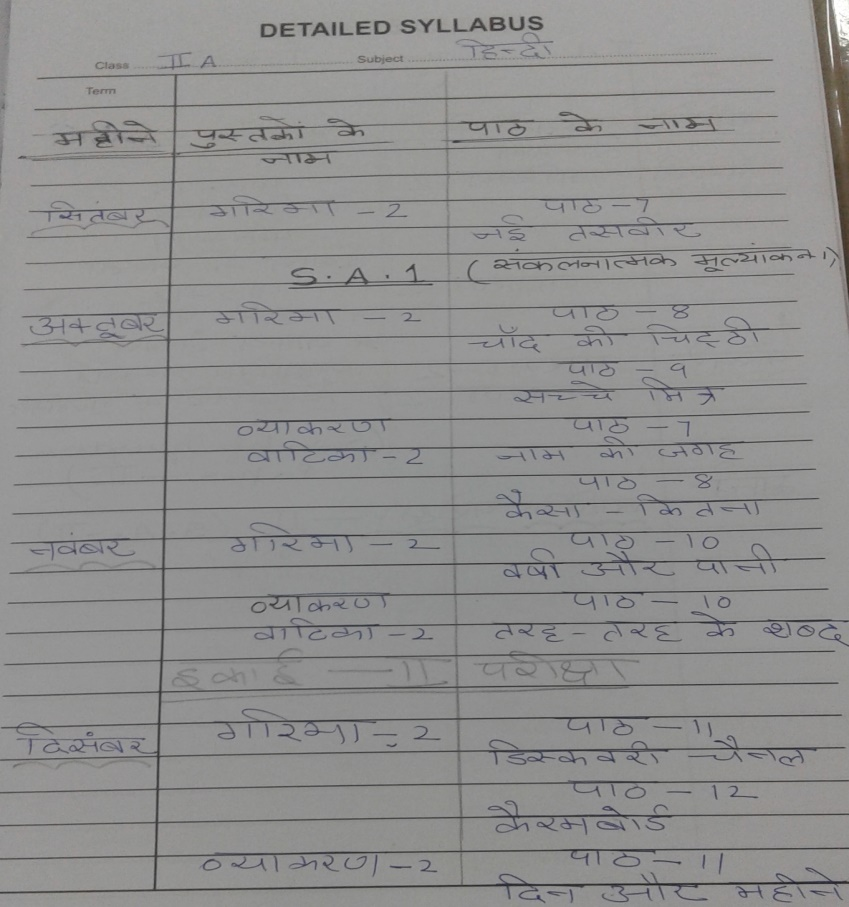 DETAILED SYLLABUS
Class II A Subject हिन्दी
Term
महीने पुस्तकों के पाठ के नाम
नाम
सितंबर गरिमा - 2 पाठ - 7
नई तसवीर
S.A.1 (संकलनात्मक मूल्यांकन 1)
अक्टूबर गरिमा - 2 पाठ - 8
चाँद की चिट्ठी
पाठ - 9
सच्चे मित्र
व्याकरण पाठ - 7
वाटिका - 2 नाम की जगह
पाठ - 8
कैसा - कितना
नवंबर गरिमा - 2 पाठ - 10
वर्षा और पानी
व्याकरण पाठ - 10
वाटिका - 2 तरह - तरह के शब्द
इकाई - II परीक्षा
दिसंबर गरिमा - 2 पाठ - 11
डिस्कवरी चैनल
पाठ - 12
कैरमबोर्ड
व्याकरण - 2 पाठ - 11
दिन और महीने